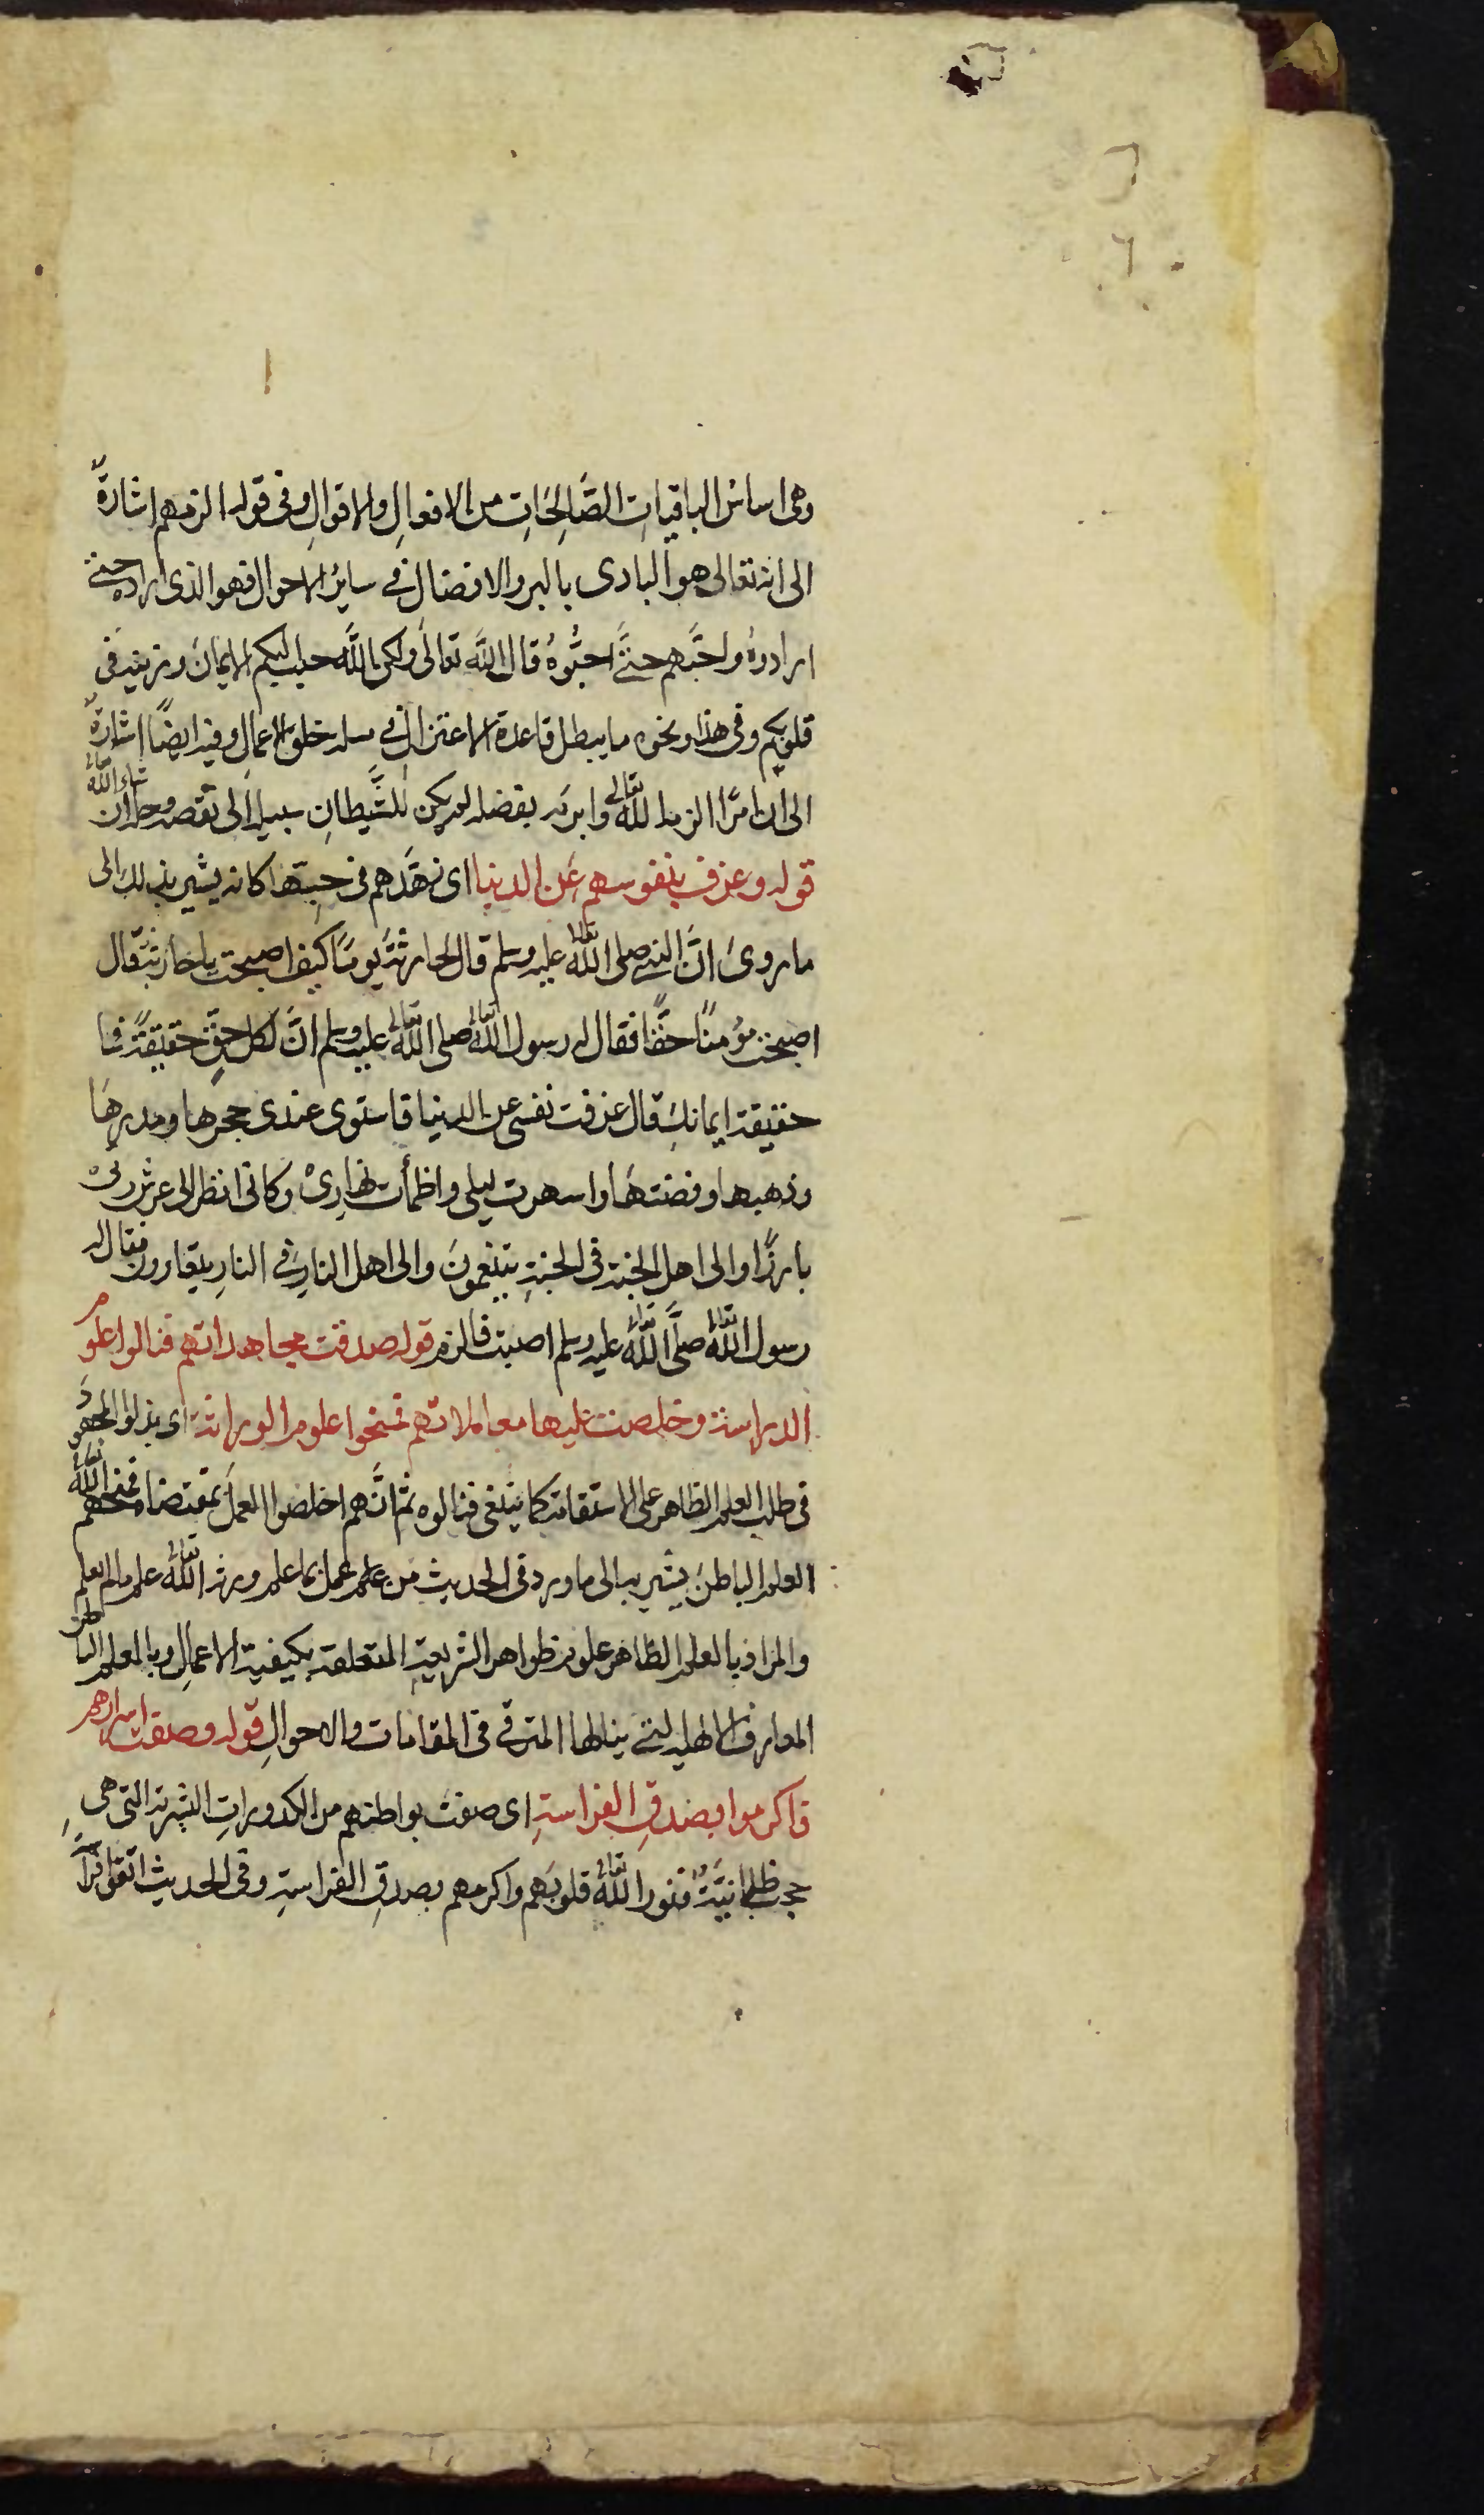 وهى اساسُ الباقياتِ الصَّالِحَاتِ من الافعالِ والاقوالِ وفى قوله الزمهم اشارةٌ
الى انه تعالى هو البادى بالبر والافضال فى سايرُ الاحوال فهو الذى ارادهم حتى
ارادوهُ واحبَّهم حتىَّ احبُّوهُ قال اللَّه تعالى ولكن اللَّه حبب اليكم الايمانَ وزينه فى
قلوبكم وفى هذا ونحوه ما يبطل قاعدة الاعتزال فى مسله خلق الاعمالِ وفيه ايضًا اشارةٌ
الى ان امرًا الزمه اللَّه تعالى وابرَمه بفضله لم يكن للشَّيطانِ سبيل الى نقصه وحله ان شاء اللّٰه تعالى
قوله وعزف بنفوسهم عَن الدنيا اى زهَّدهم فى حبيتها كانه يشير بذلك الى
ما روىَ انَّ النبى صلى اللّٰه تعالى عليه وسلم قال لحارثةَ يومًا كيف اصبحت يا حارثة قال
اصبحت مؤمنًا حقًّا فقال له رسول اللّٰه تعالى صلى اللّٰه تعالى عليه وسلم انَّ لكل حقٍّ حقيقةً فما
حقيقة ايمانك قال عزفت نفسى عن الدنيا فاستوى عندى حجرها ومدرهَا
وذهبها وفضتهَا واسهرت ليلى واظمأت نهارىْ وكانى انظر الى عرش ربىْ
بارزًا والى اهل الجنة فى الجنةِ يتنعمونَ والى اهل النار فى النارِ يتعاوون فقال له
رسول اللّٰه تعالى صلَّى اللّٰه تعالى عليه وسلم اصبت فالزم قوله صدقت مجاهداتهم فنالوا علوم
الدراسة وخلصت عليها معاملاتهم فمنحوا علوم الوراثة اى بذلوا المجهودَ
فى طلب العلم الظاهر على الاستقامة كما ينبغى فنالوه ثم انَّهم اخلصوا العملَ بمقتضاه فمنحهم اللّٰه تعالى
العلم الباطنَ يشير به الى ما ورد فى الحديث مَن علم عمل بما علم ورثه اللّٰه تعالى علم مالم يعلم
والمراد بالعلم الظَاهر علوم ظواهر الشريعةِ المتعلقة بكيفيةِ الاعمالِ وبالعلم الباطن
المعارف الالهيه التى ينالها المترقى فى المقامات والاحوالِ قوله وصفت اسرارهم
فاكرموا بصدقِ الفراسةِ اى صفتْ بواطنهم من الكدوراتِ البشرية التى هى
حجب ظلمانيَّةٌ فنور اللّٰه تعالى قلوبَهم واكرمهم بصدقِ الفراسةِ وفى الحديث اتقوا فراسة